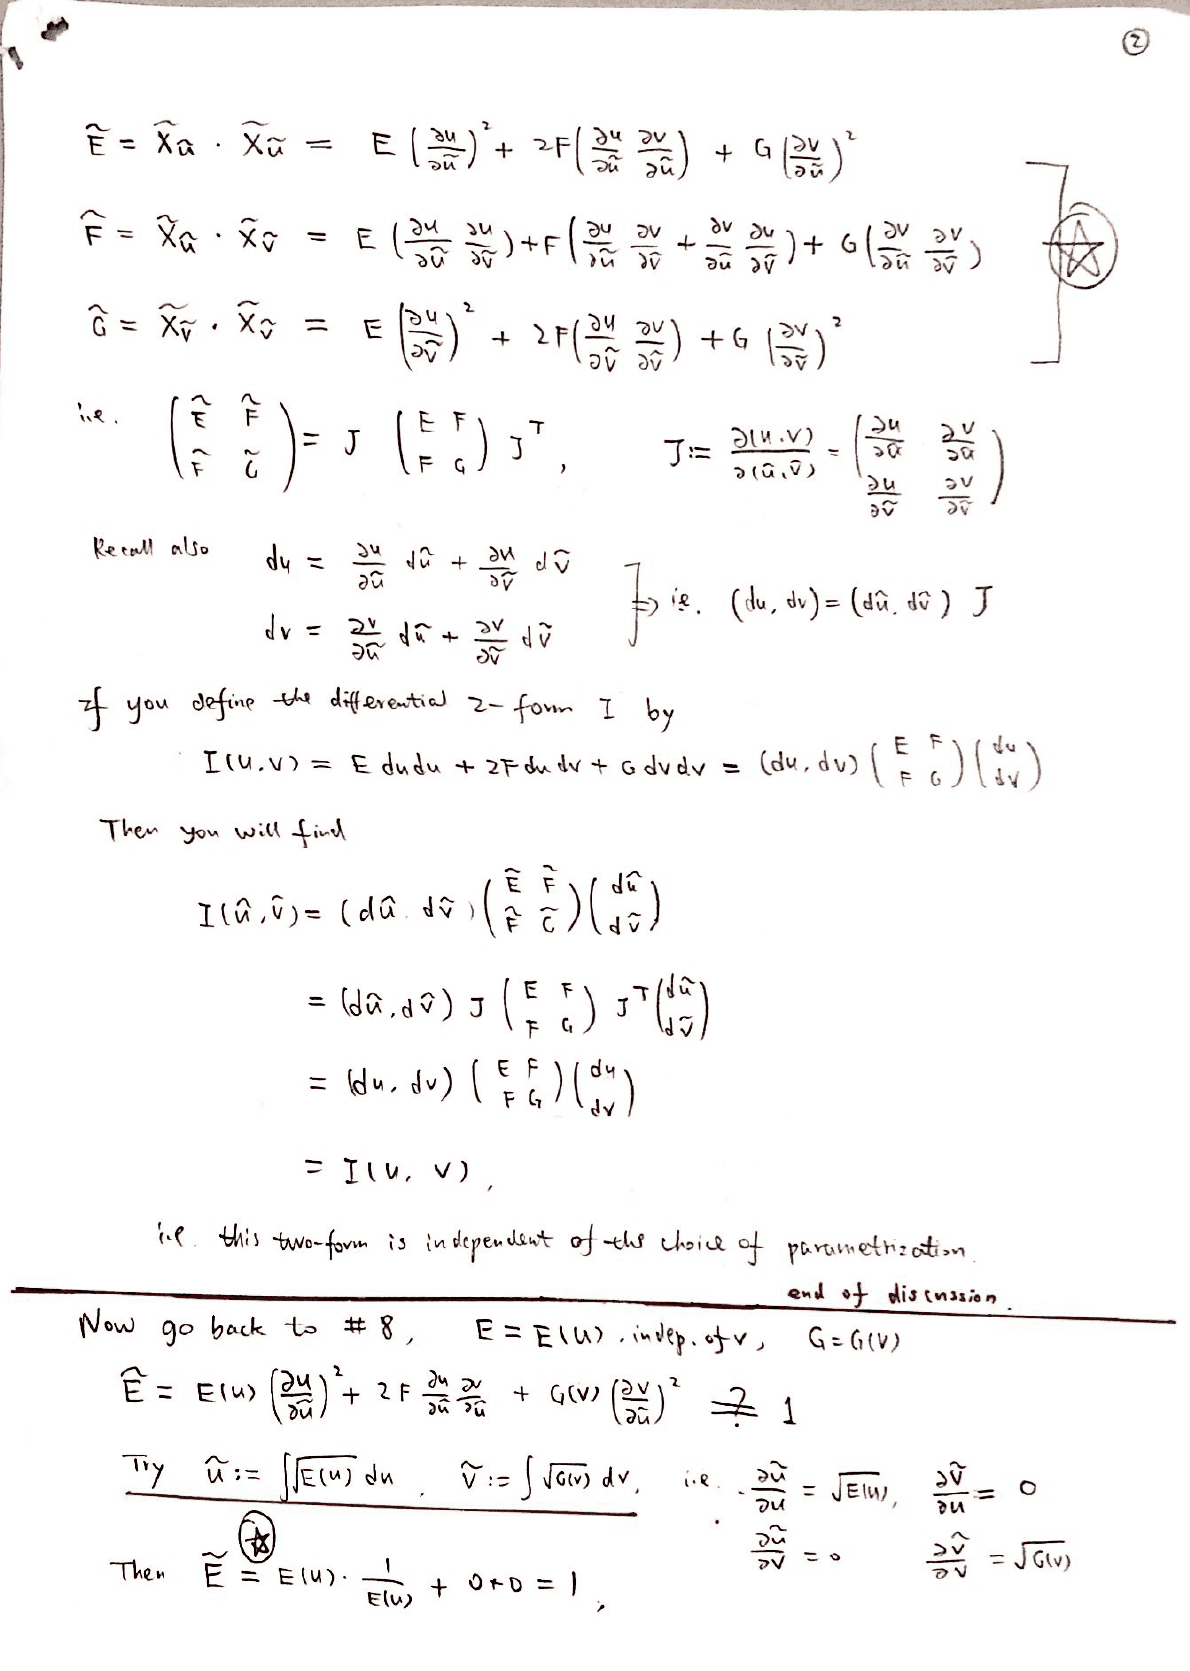 ②
Ẽ = X̃ũ · X̃ũ = E (∂u/∂ũ)² + 2F(∂u/∂ũ ∂v/∂ũ) + G(∂v/∂ũ)²
F̃ = X̃ũ · X̃ṽ = E (∂u/∂ũ ∂u/∂ṽ) + F(∂u/∂ũ ∂v/∂ṽ + ∂v/∂ũ ∂u/∂ṽ) + G(∂v/∂ũ ∂v/∂ṽ) ] ☆
G̃ = X̃ṽ · X̃ṽ = E (∂u/∂ṽ)² + 2F(∂u/∂ṽ ∂v/∂ṽ) + G (∂v/∂ṽ)²
i.e. (Ẽ F̃ ; F̃ G̃) = J (E F ; F G) Jᵀ, J := ∂(u,v)/∂(ũ,ṽ) = (∂u/∂ũ ∂v/∂ũ ; ∂u/∂ṽ ∂v/∂ṽ)
Recall also du = ∂u/∂ũ dũ + ∂u/∂ṽ dṽ
dv = ∂v/∂ũ dũ + ∂v/∂ṽ dṽ ] ⇒ ie. (du, dv) = (dũ, dṽ) J
If you define the differential 2-form I by
I(u,v) = E dudu + 2F du dv + G dv dv = (du, dv) (E F ; F G) (du ; dv)
Then you will find
I(ũ,ṽ) = (dũ, dṽ) (Ẽ F̃ ; F̃ G̃) (dũ ; dṽ)
= (dũ, dṽ) J (E F ; F G) Jᵀ (dũ ; dṽ)
= (du, dv) (E F ; F G) (du ; dv)
= I(u, v),
i.e. this two-form is independent of the choice of parametrization.
end of discussion.
Now go back to # 8, E = E(u), indep. of v, G = G(v)
Ẽ = E(u) (∂u/∂ũ)² + 2F ∂u/∂ũ ∂v/∂ũ + G(v) (∂v/∂ũ)² =? 1
Try ũ := ∫√E(u) du, ṽ := ∫√G(v) dv, i.e. ∂ũ/∂u = √E(u), ∂ṽ/∂u = 0
∂ũ/∂v = 0 ∂ṽ/∂v = √G(v)
Then Ẽ =☆ E(u) · 1/E(u) + 0+0 = 1,